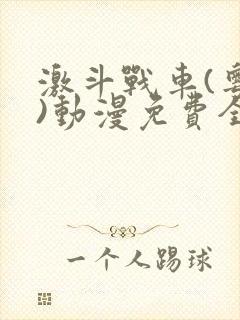 激斗戰車(
)動漫免費全
一个人踢球